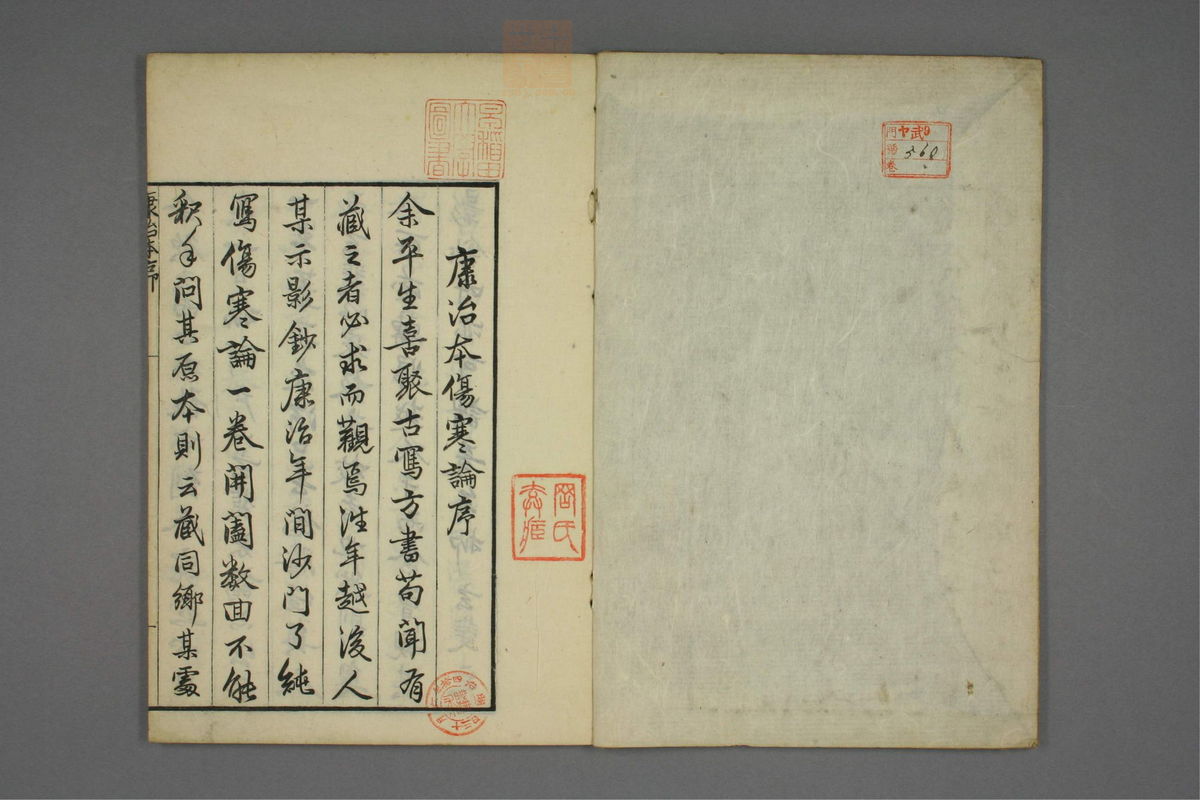 康治本傷寒論序
余平生喜聚古寫方書苟聞有
藏之者必求而觀焉往年越後人
某示影鈔康治年間沙門了純
寫傷寒論一卷開闔數回不能
釈手問其原本則云藏同鄉某處
康治本序
早稲田
大學
圖書
門 ヤ9
號 568
卷